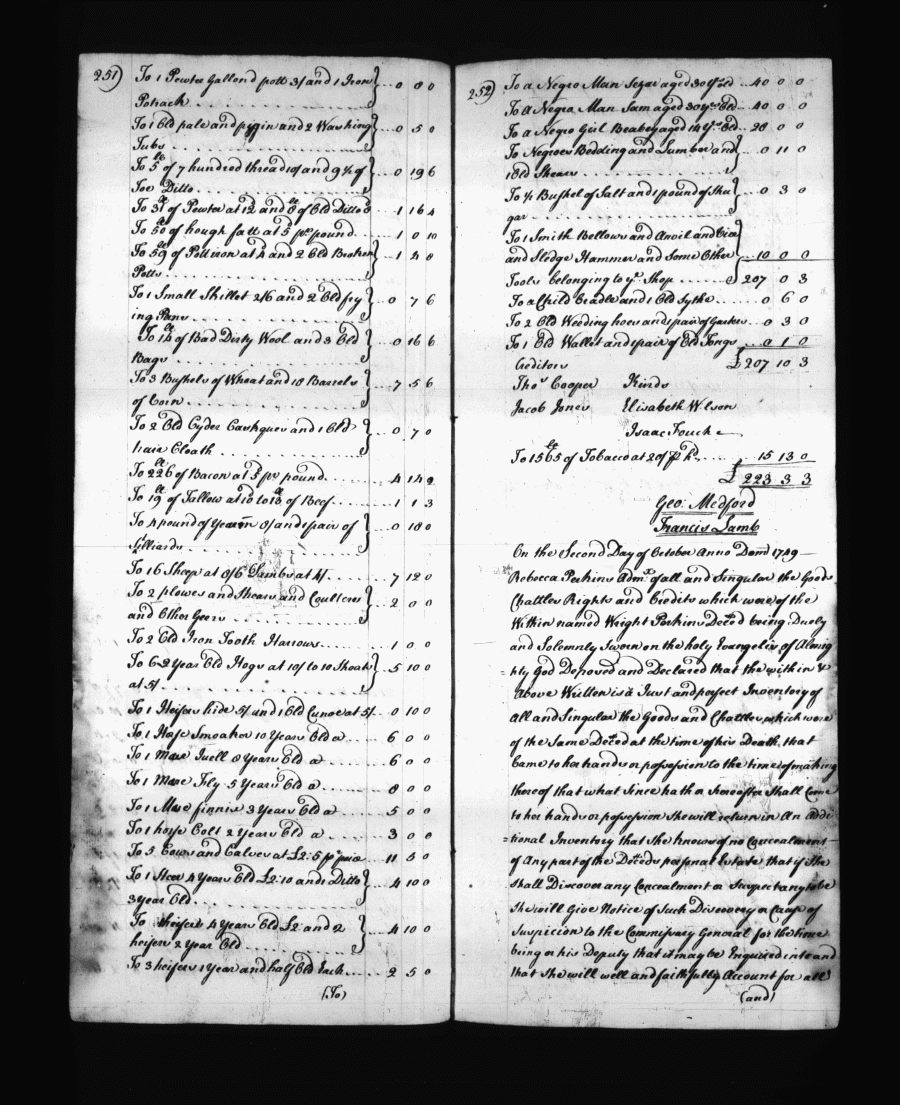 251)
To 1 Pewter Gallond pott 3/ and 1 Iron
Potrack . . . 0 8 0
To 1 Old pale and pigin and 2 Washing
Tubs . . . 0 5 0
To 5 lb of 7 hundred thread 10/ and 9 1/2 of
Toe Ditto . . . 0 19 6
To 31 lb of Pewter at 12 and 8 of Old Ditto . . . 1 16 4
To 50 lb of hough fatt at 5 pr pound . . . 1 0 10
To 59 lb of Pott iron at 4 and 2 Old Broken
Potts . . . 1 4 8
To 1 Small Skillet 2/6 and 2 Old fry
ing Pans . . . 0 7 6
To 14 lb of Bad Dirty Wool and 3 Old
Bags . . . 0 16 6
To 3 Bushels of Wheat and 18 Barrels
of Corn . . . 7 5 6
To 2 Old Cyder Casks and 1 Old
hair Cloath . . . 0 7 0
To 226 lb of Bacon at 5 pr pound . . . 4 14 2
To 19 lb of Tallow at 10 to 18 lb of Beef . . . 1 1 3
To 4 pound of Yearn 8/ and 1 pair of
Stilliards . . . 0 18 0
To 16 Sheep at 8/6 Lambs at 4/ . . . 7 12 0
To 2 plowes and Shears and Coulters
and Other Geers . . . 2 0 0
To 2 Old Iron Tooth Harrows . . . 1 0 0
To 6 2 Year Old Hogs at 10/ to 10 Shoats
at 5/ . . . 5 10 0
To 1 Heifers hide 5/ and 1 Old Cunoe at 5/ . . 0 10 0
To 1 Horse Smoaker 10 Years Old a . . . 6 0 0
To 1 Mare Juell 8 Years Old a . . . 6 0 0
To 1 Mare Fily 5 Years Old a . . . 8 0 0
To 1 Mare jinnie 3 Years Old a . . . 5 0 0
To 1 horse Colt 2 Years Old a . . . 3 0 0
To 5 Cows and Calves at £2:5 pr pair . . . 11 5 0
To 1 Steer 4 Years Old £2:10 and 1 Ditto
3 Year Old . . . 4 10 0
To heifers 4 Year Old £2 and 2
heifers 2 Year Old . . . 4 10 0
To 3 heifers 1 Year and half Old Each . . . 2 5 0
(To)
252)
To a Negro Man Sezar aged 30 Yrs Old . . . 40 0 0
To a Negro Man Sam aged 30 Yrs Old . . . 40 0 0
To a Negro Girl aged 14 Yrs Old . . . 28 0 0
To Negroes Bedding and Lumber and
1 Old Shears . . . 0 11 0
To 1/2 Bushel of Salt and 1 pound of Shu
gar . . . 0 3 0
To 1 Smith Bellows and Anvil and Vice
and Sledge Hammer and Some Other 10 0 0
Tools belonging to ye Shop . . . 207 0 3
To a Child Cradle and 1 Old Sythe . . . 0 6 0
To 2 Old Weeding hoes and 1 pair of Garters . . 0 3 0
To 1 Old Wallet and 1 pair of Old Tongs . . 0 1 0
Creditors £207 10 3
Thos Cooper Kinds
Jacob Jones Elisabeth Wilson
Isaac Fouche
To 1565 lb of Tobacco at 20/ pr hd . . . 15 13 0
£ 223 3 3
Geo: Medford
Francis Lamb
On the Second Day of October Anno Domi 1749
Rebecca Perkins Admx of all and Singular the Goods
Chattles Rights and Credits which were of the
Within named Weight Perkins Deced being Duely
and Solemnly Sworn on the holy Evangelis of Almig
=hty God Deposed and Declared that the within &
Above Written is a Just and perfect Inventory of
All and Singular the Goods and Chattles which were
of the Same Deced at the time of his Death that
Came to her hands or possession to the time of making
thereof that what Since hath or hereafter Shall Come
to her hands or possession She will return in An Addi
=tional Inventory that She knows of no Concealment
of Any part of the Deceds personal Estate that if She
Shall Discover any Concealment or Suspect any to be
She will Give Notice of Such Discovery or Cause of
Suspicion to the Commissary General for the time
being or his Deputy that it may be Enquired into and
that She will well and faithfully Account for all
(and)